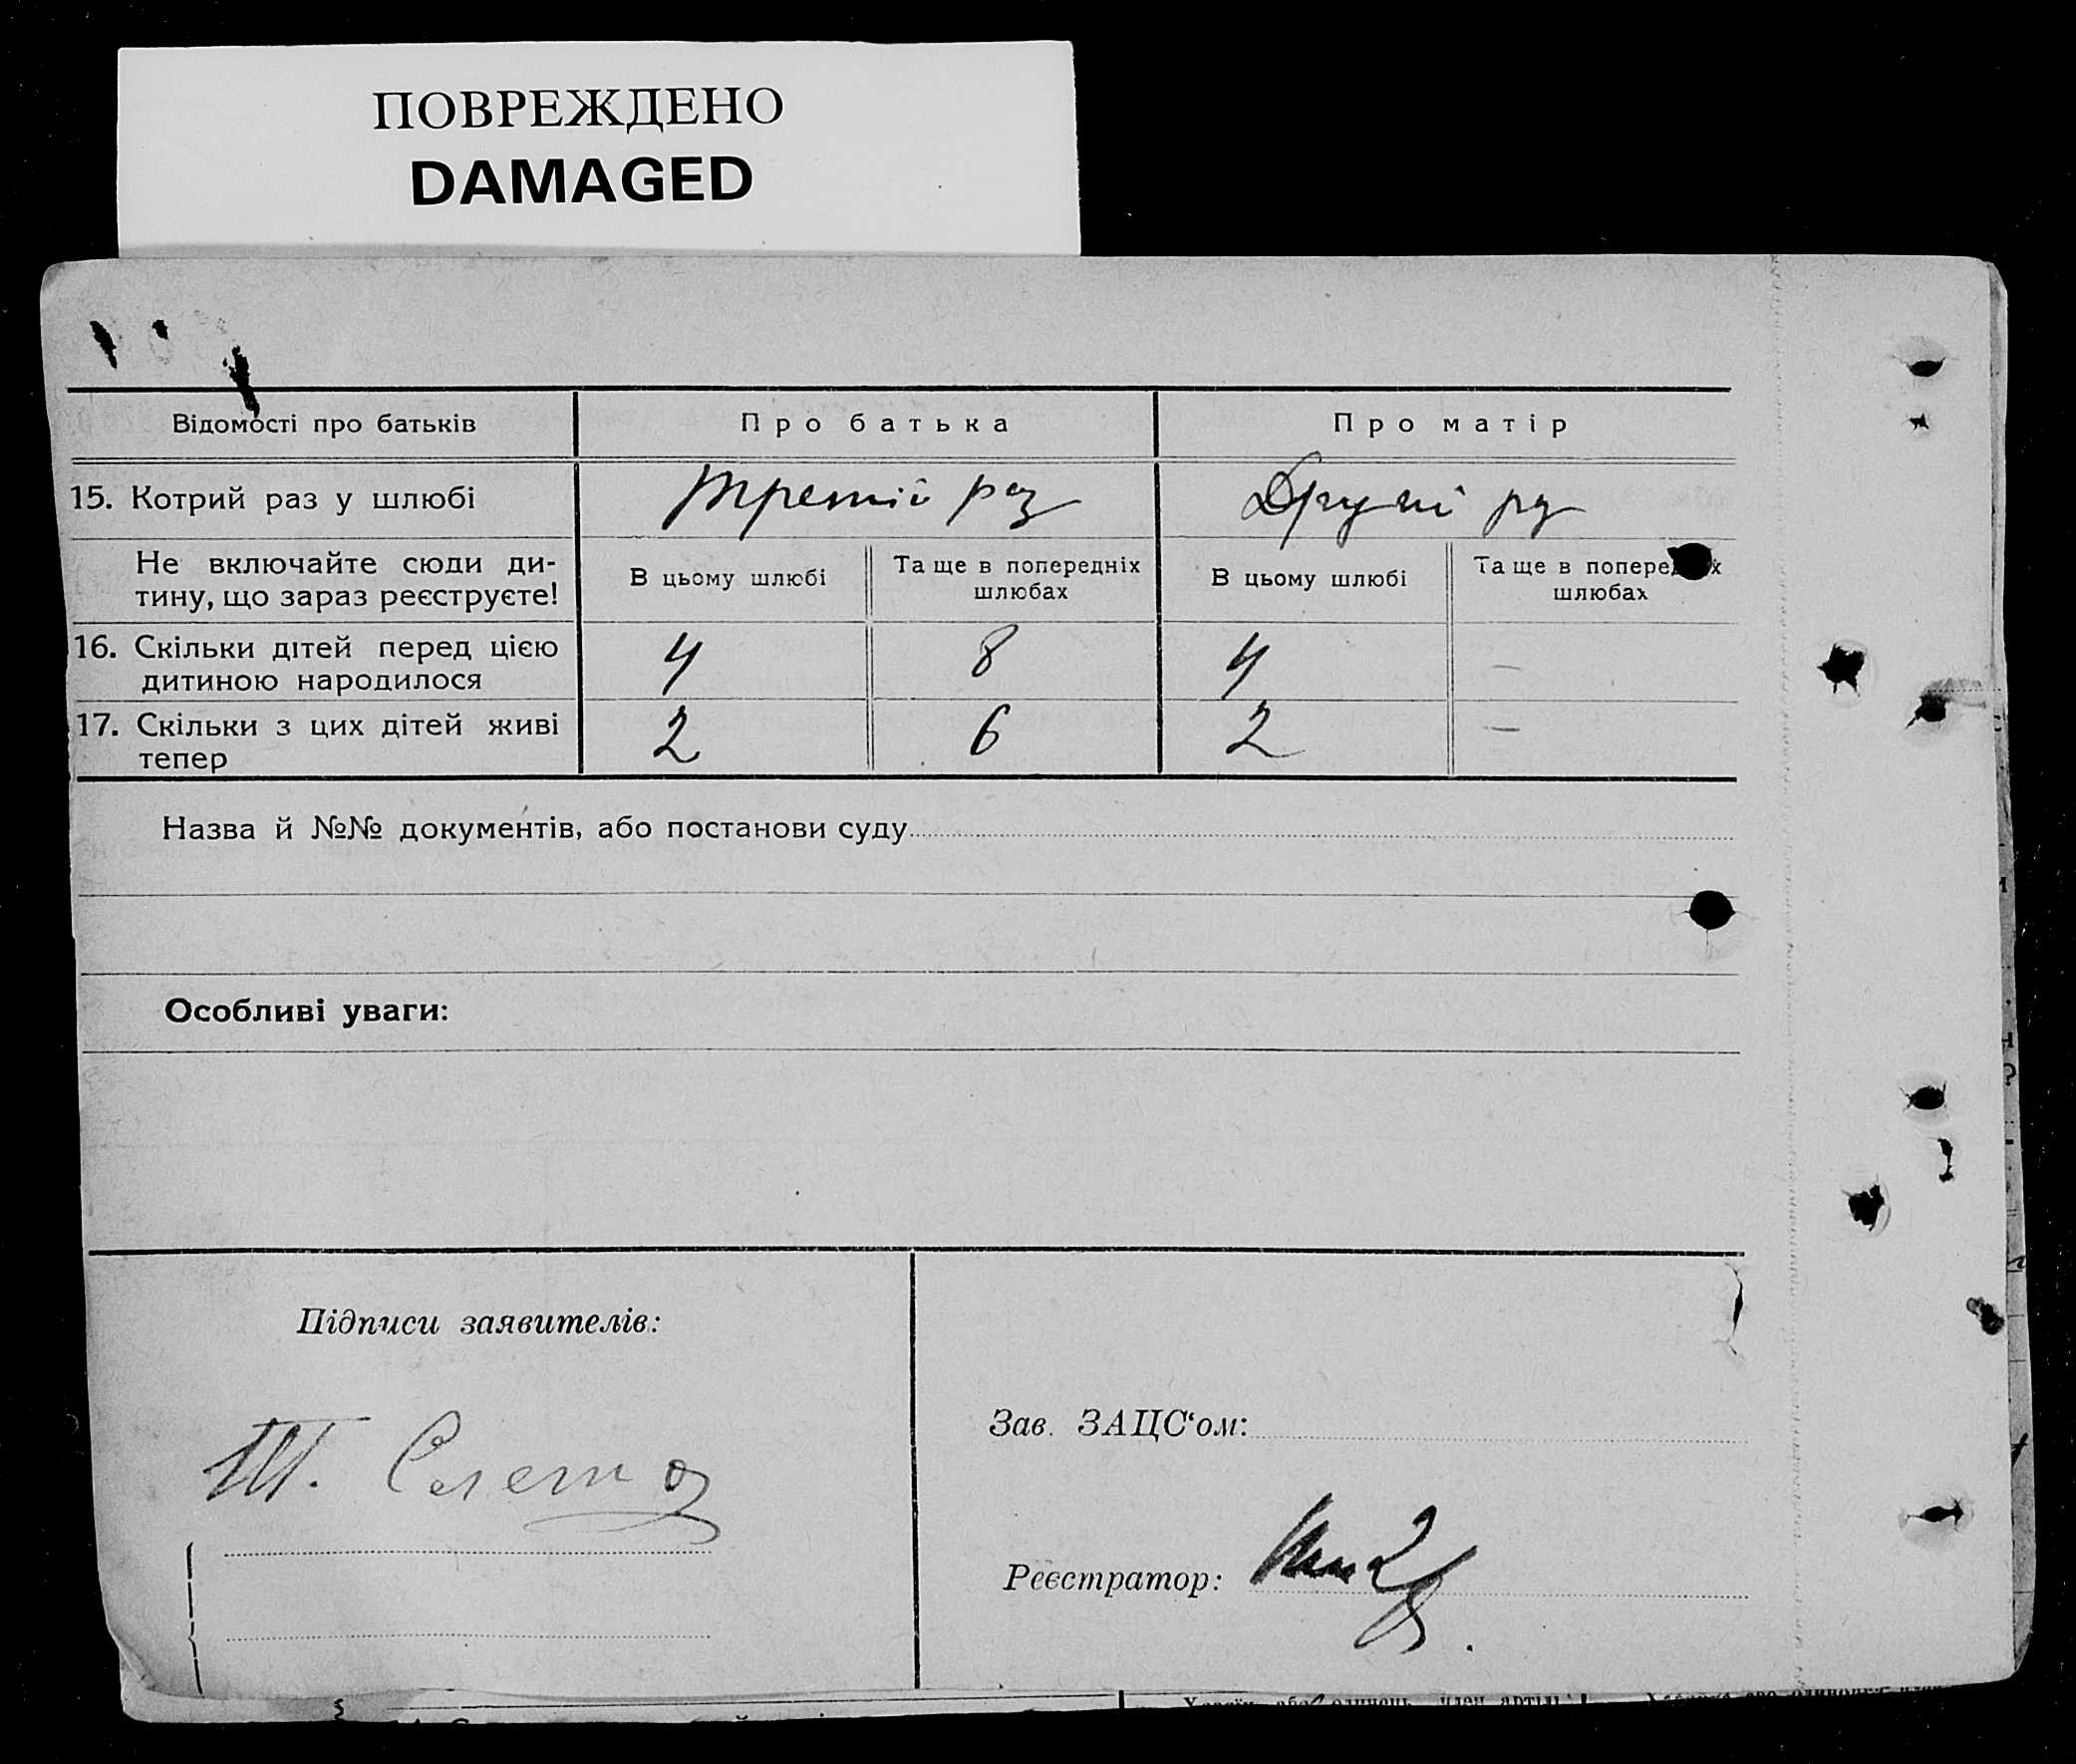 ПОВРЕЖДЕНО
DAMAGED
Відомості про батьків
Про батька
Про матір
15. Котрий раз у шлюбі
третій раз
Другий раз
Не включайте сюди ди-
тину, що зараз реєструєте!
В цьому шлюбі
Та ще в попередніх
шлюбах
В цьому шлюбі
Та ще в попередніх
шлюбах
16. Скільки дітей перед цією
дитиною народилося
4
8
4
—
17. Скільки з цих дітей живі
тепер
2
6
2
—
Назва й №№ документів, або постанови суду
Особливі уваги:
Підписи заявителів:
Зав. ЗАЦС‘ом:
Реєстратор: